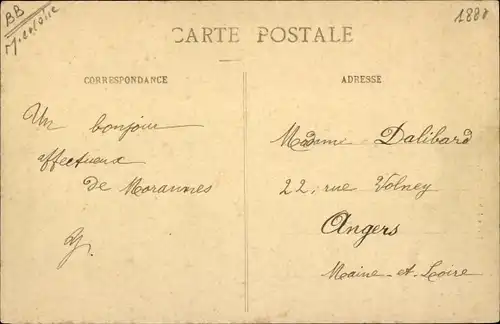 BB
1880
CARTE POSTALE
CORRESPONDANCE
ADRESSE
Un bonjour
affectueux
de Morannes
Madame Dalibard
22, rue Volney
Angers
Maine-et-Loire